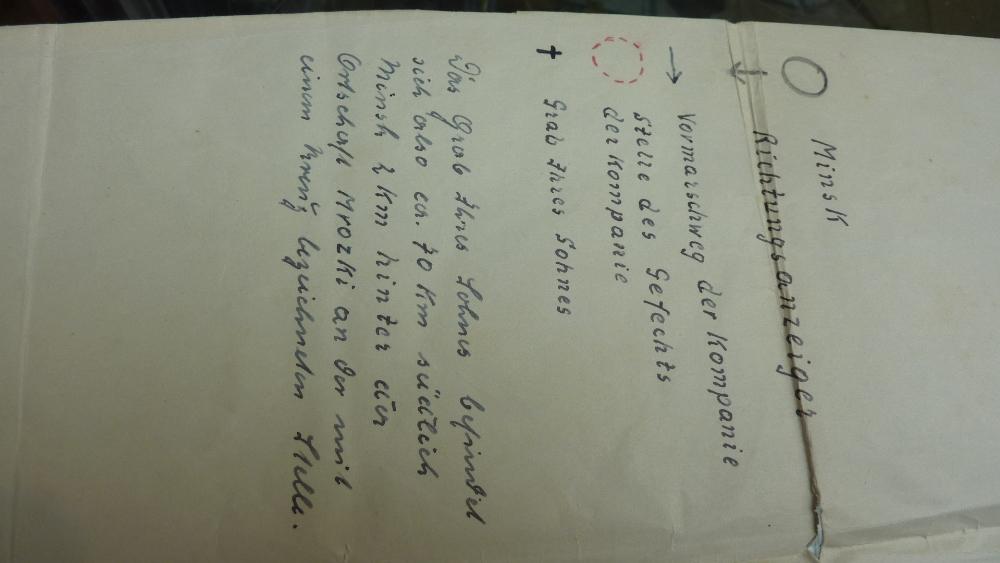 Minsk
Richtungsanzeiger
Vormarschweg der Kompanie
Stelle des Gefechts
der Kompanie
Grab Ihres Sohnes
Das Grab Ihres Sohnes befindet
sich also ca. 70 Km südlich
Minsk 2 km hinter der
Ortschaft Mrozki an der mit
einem Kreuz bezeichneten Stelle.